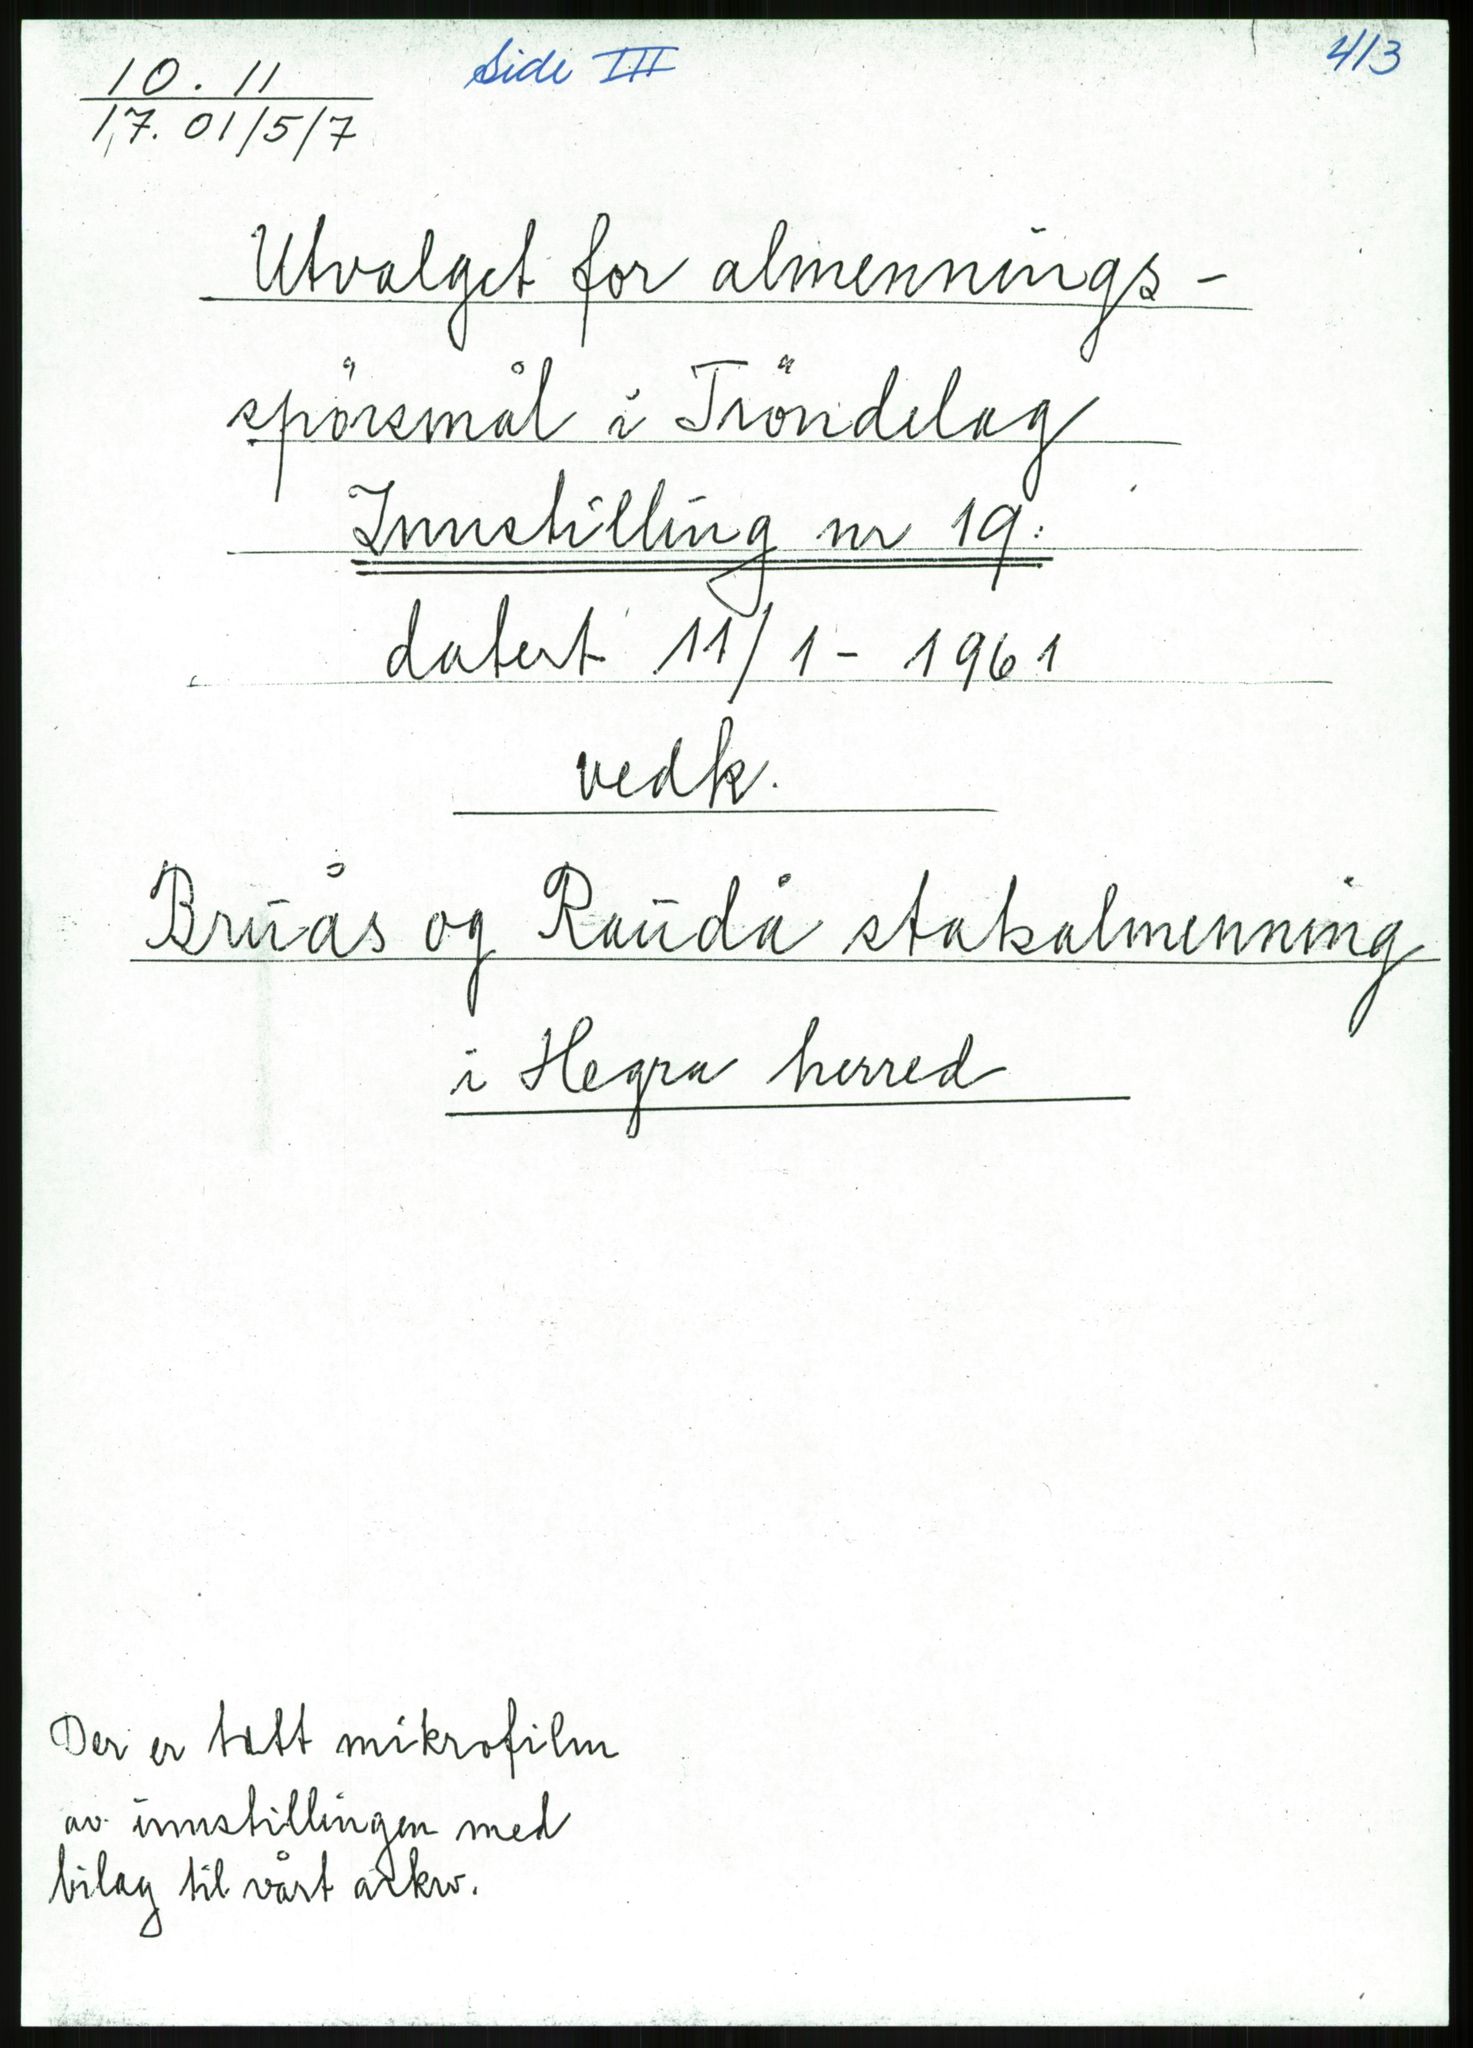 10.11
17.01/5/7
Side III
413
Utvalget for almennings-
spörsmål i Tröndelag
Innstilling nr 19:
datert 11/1 - 1961
vedk.
Bruås og Raudå statsalmenning
i Hegra herred
Der er tatt mikrofilm
av innstillingen med
bilag til vårt arkiv.